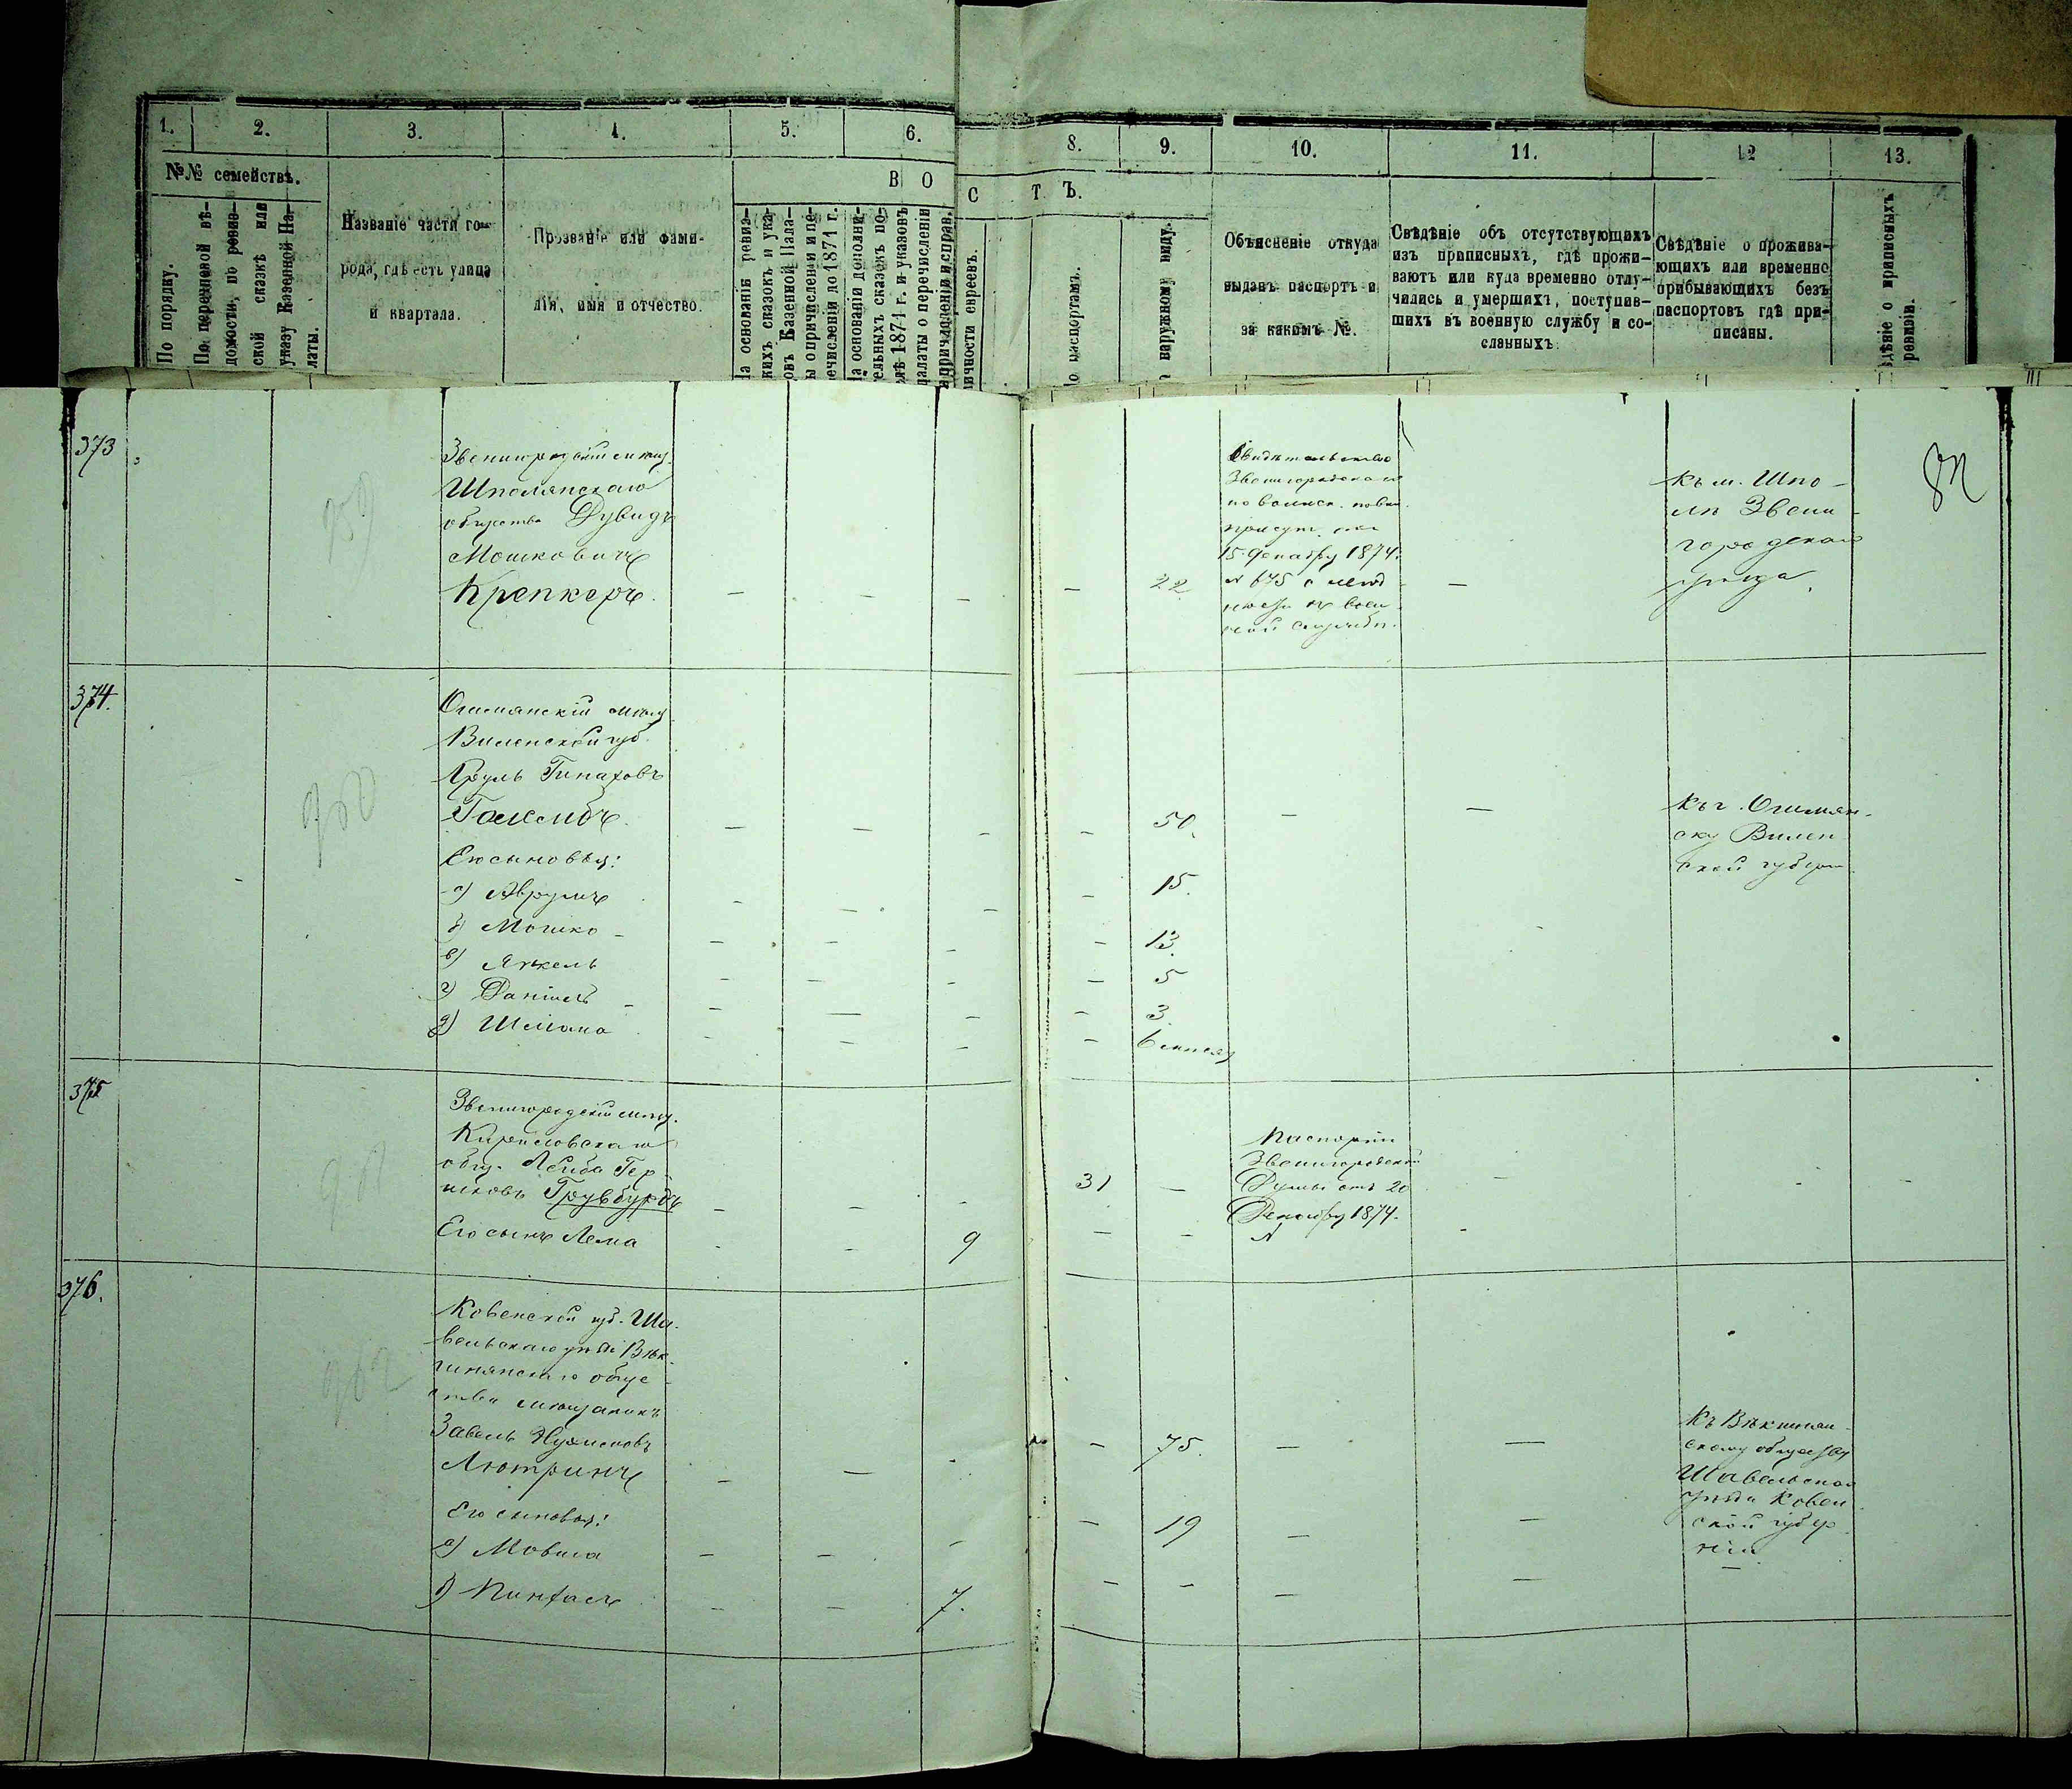 1.
2.
3.
4.
5.
6.
8.
9.
10.
11.
12
13.
№№ семействъ.
В О
С Т Ъ.
По порядку.
По перечневой вѣ-
домости, по ревиз-
ской сказкѣ или
указу Казенной Па-
латы.
Названіе части го-
рода, гдѣ есть улица
и квартала.
Прозваніе или фами-
лія, имя и отчество.
На основаніи ревиз-
скихъ сказокъ и ука-
зовъ Казенной Пала-
ты о причисленіи и пе-
речисленіи до 1871 г.
На основаніи дополни-
тельныхъ сказокъ по-
слѣ 1871 г. и указовъ
палаты о перечисленіи
личности евреевъ.
По паспортамъ.
наружному виду.
Объясненіе откуда
выданъ паспортъ и
за какимъ №.
Свѣдѣніе объ отсутствующихъ
изъ приписныхъ, гдѣ прожи-
ваютъ или куда временно отлу-
чились и умершихъ, поступив-
шихъ въ военную службу и со-
сланныхъ
Свѣдѣніе о прожива-
ющихъ или временно
прибывающихъ безъ
паспортовъ гдѣ при-
писаны.
дѣніе о приписныхъ
ревизіи.
373
959
Звенигородскій мѣщ.
Шполянскаго
общества Дувидъ
Мошковичъ
Крепкеръ.
22
Свидѣтельство
Звенигородскаго
по воинск. повин.
присут. отъ
15 Декабря 1874.
№ 675 о
къ воин-
ской службѣ.
Къ м. Шпо-
лѣ Звени-
городскаго
уѣзда.
374.
960
Ошмянскій мѣщ.
Виленской губ.
Сруль
Голембъ.
50.
Къ г. Ошмян-
ску Вилен-
ской губерн.
Его сыновья:
а) Аврумъ
15.
б) Мошко
13.
в) Янкель
5
г) Даніель
3.
д) Шліома
6 мѣсяц.
375
961
Звенигородскій мѣщ.
Кириловскаго
общ. Лейба Гер-
шковъ Грувбурдъ
31
Паспортъ
Звенигородской
Думы отъ 20
Декабря 1874.
№
Его сынъ Лема
9
376.
962
Ковенской губ. Ша-
вельскаго уѣзда Вѣк-
шнянскаго обще-
ства мѣщанинъ
Завель Нухимовъ
Лютринъ
75.
Къ Вѣкшнян-
скому обществу
Шавельскаго
уѣзда Ковен-
ской губер-
ніи
Его сыновья:
а) Мовша
19
б) Пинхасъ
7.